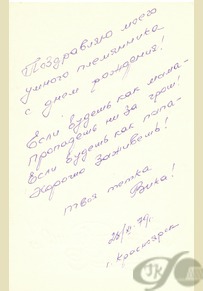 Поздравляю моего
умного племянника
с днем рождения!
Если будешь как мама -
Пропадешь ни за грош!
Если будешь как папа -
Хорошо заживешь!
твоя тетка
Вика!
г. Красноярск